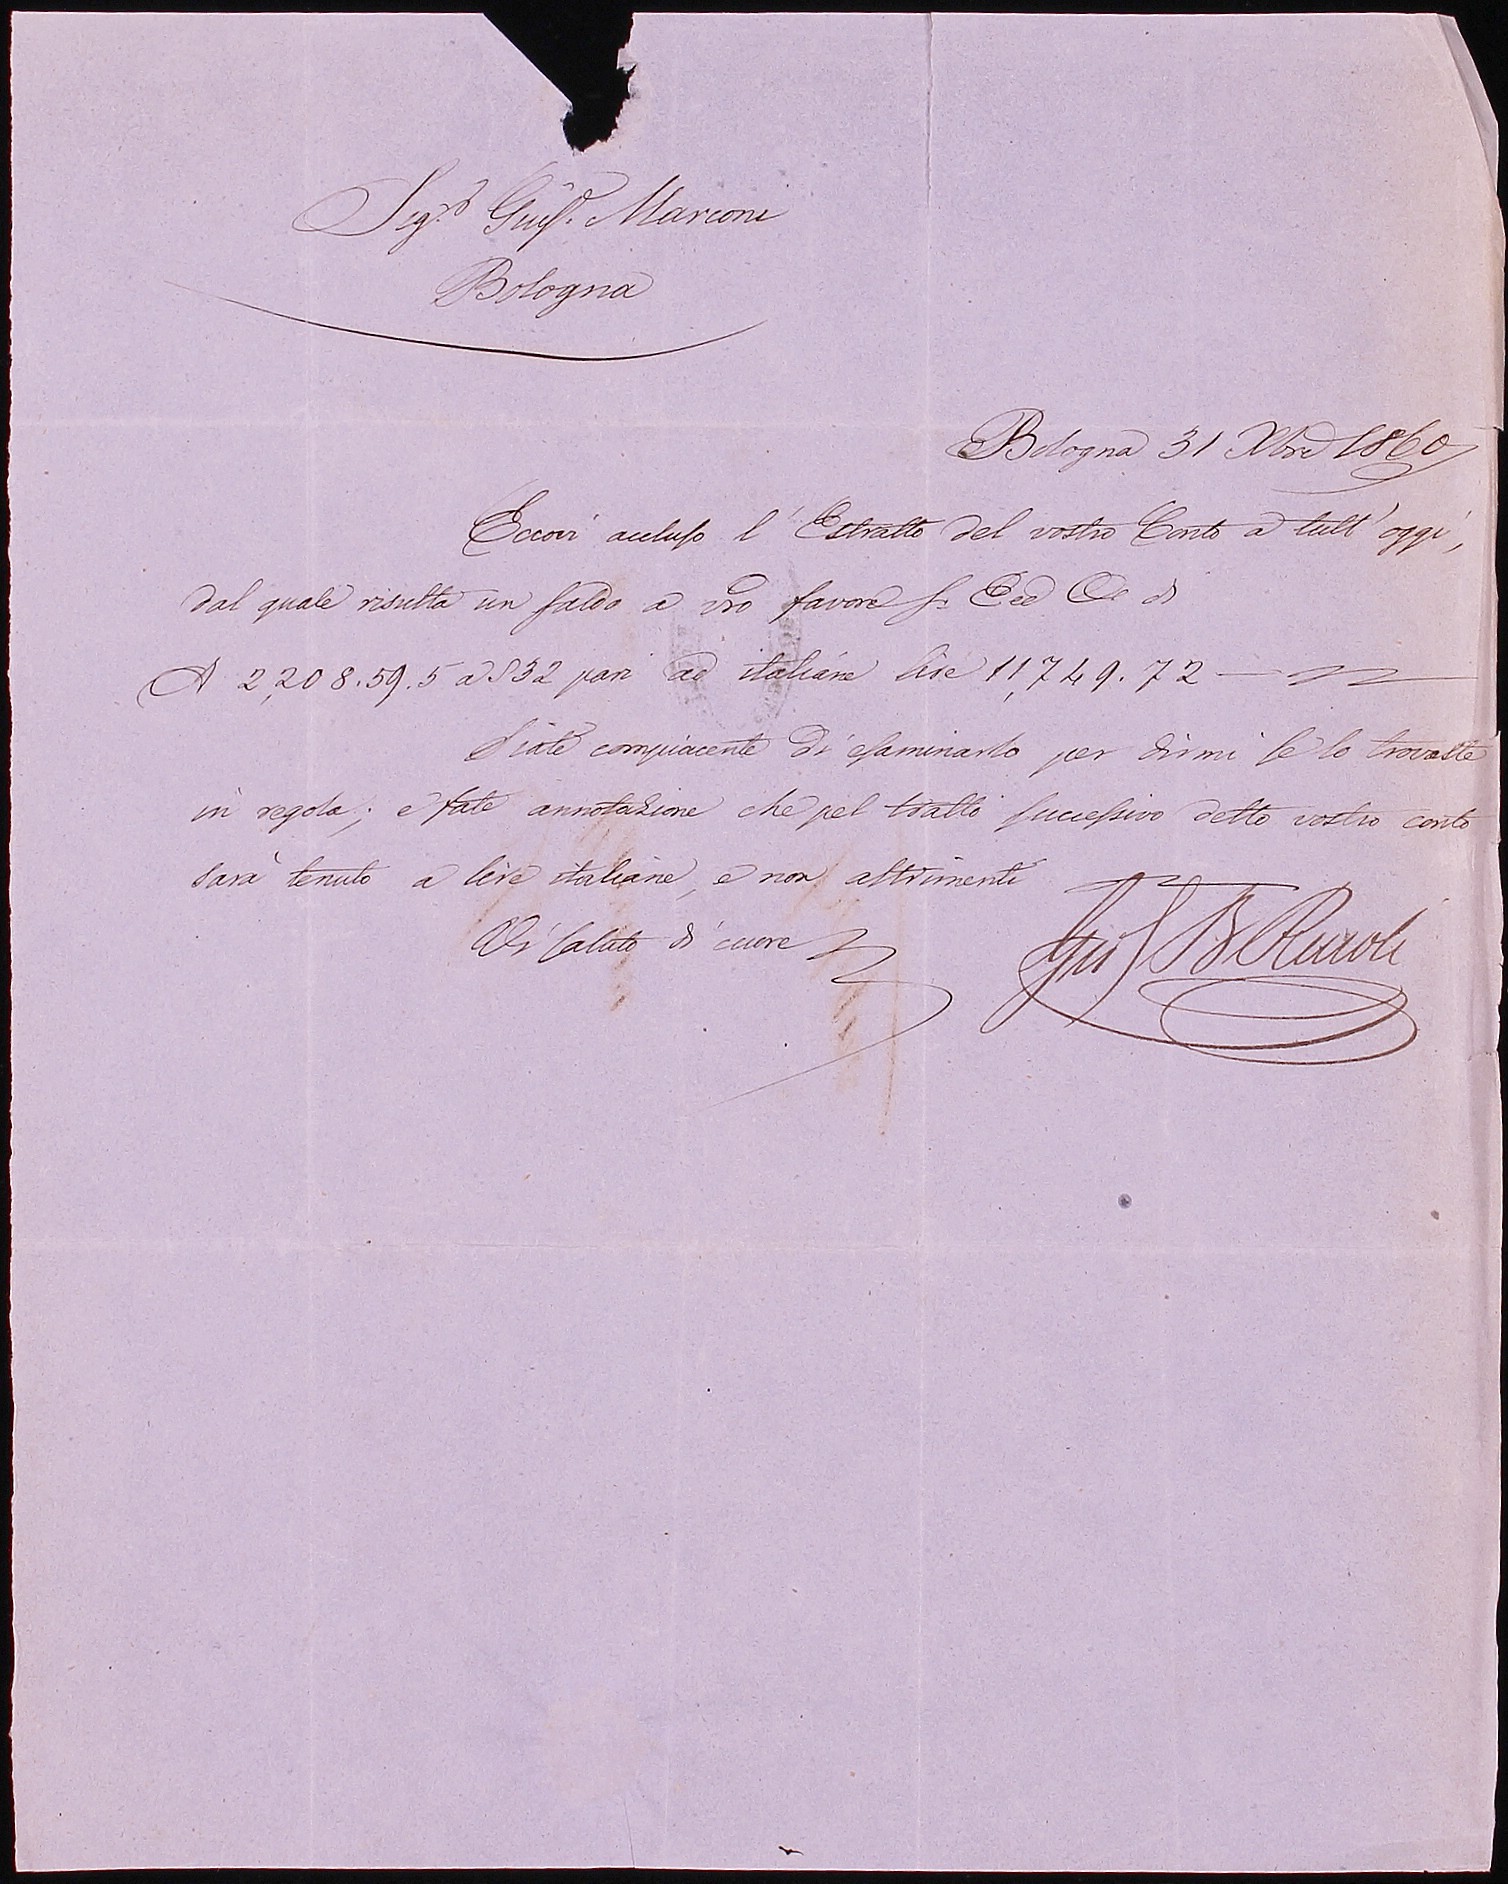 Sigr Giuse. Marconi
Bologna
Bologna 31 Xbre 1860
Eccovi accluso l'Estratto del vostro Conto a tutt'oggi,
dal quale risulta un saldo a vro favore di
2,208.59.5 a 532 pari ad italiane lire 11,749.72
Siate compiacente di esaminarlo per dirmi se lo trovaste
in regola; e fate annotazione che pel tratto successivo detto vostro conto
sarà tenuto a lire italiane, e non altrimenti
Vi saluto di cuore